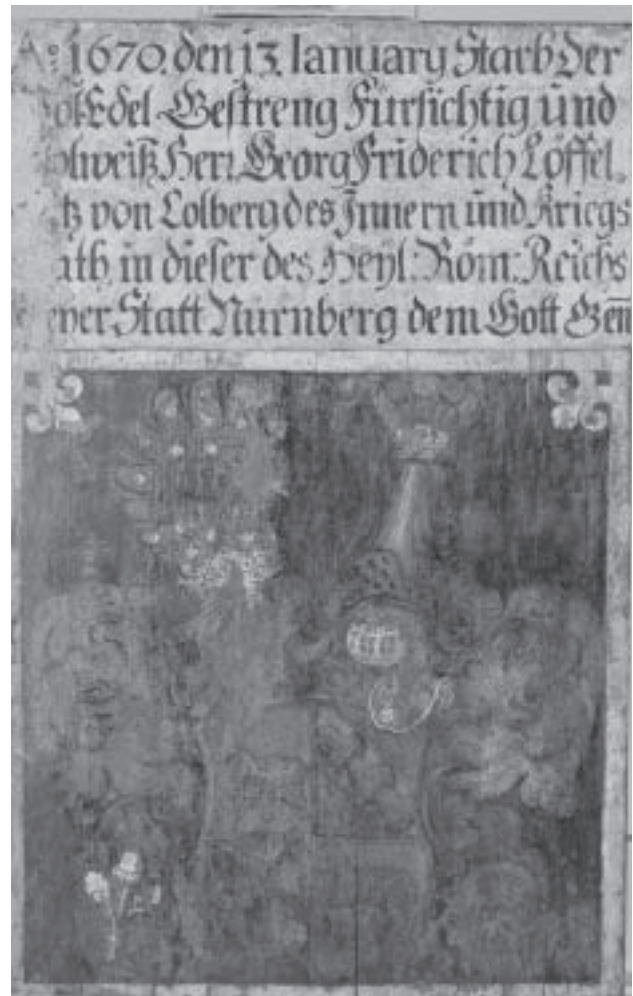 Aº 1670. den 13. Ianuary Starb der
Edel Gestreng Fürsichtig und
Herr Georg Friderich Löffel.
tz von Colberg des Innern und Kriegs
ath in dieser des Heyl: Röm: Reichs
Statt Nürnberg dem Gott Gen̄